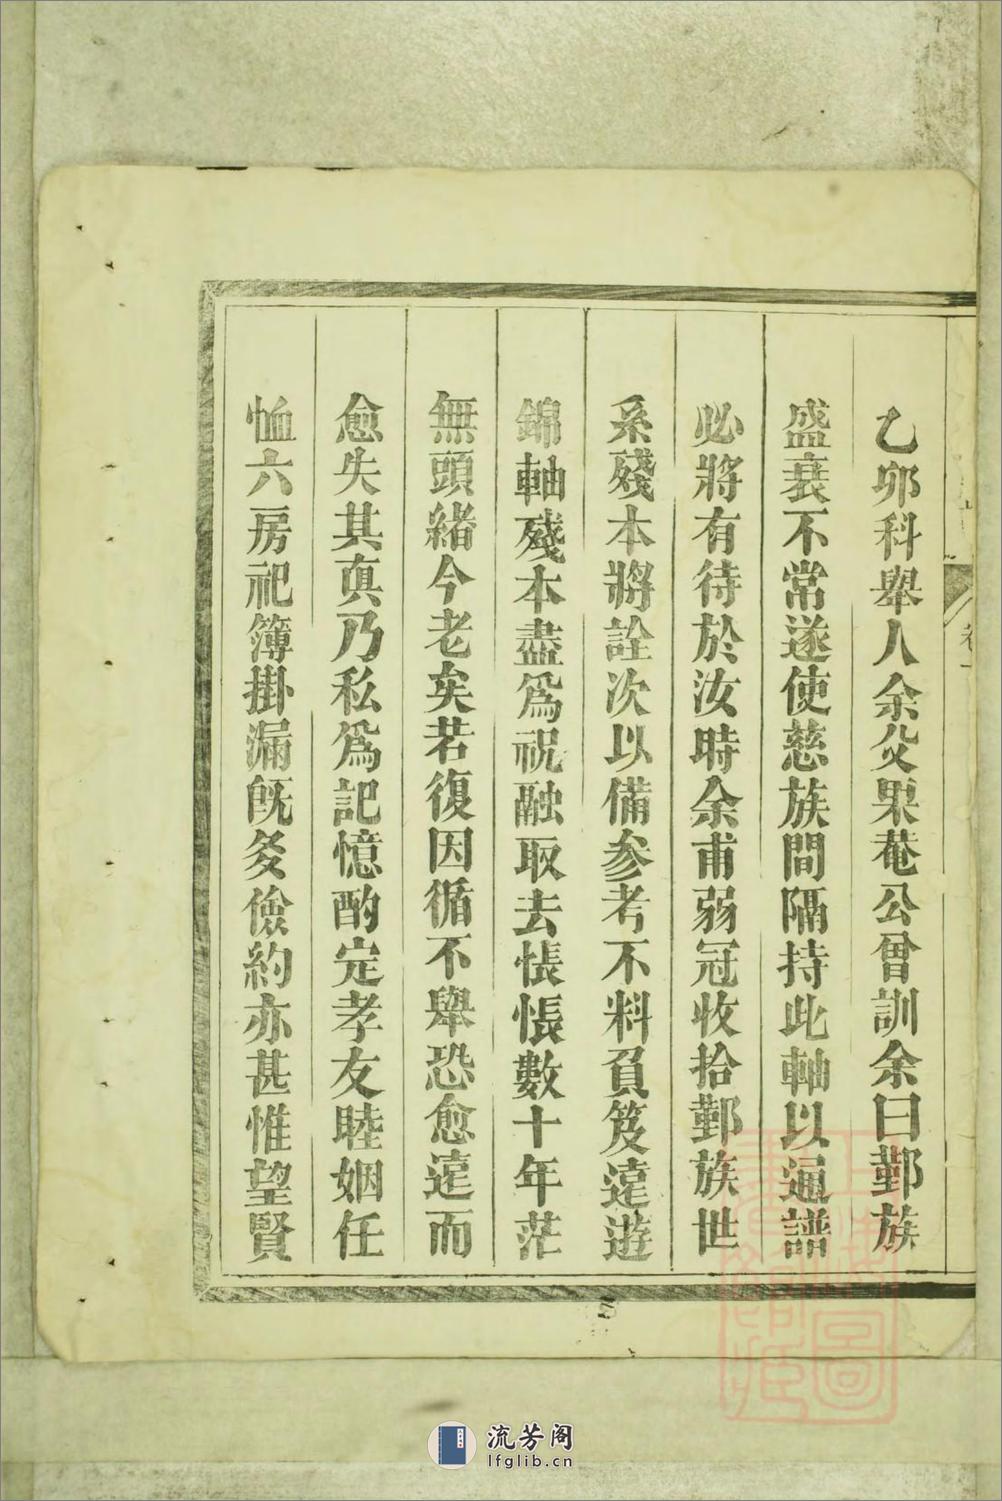 乙卯科舉人余父果菴公曾訓余曰鄞族
盛衰不常遂使慈族間隔持此軸以通譜
必將有待於汝時余甫弱冠收拾鄞族世
系殘本將詮次以備參考不料負笈遠遊
錦軸殘本盡爲祝融取去悵悵數十年茫
無頭緒今老矣若復因循不舉恐愈遠而
愈失其眞乃私爲記憶酌定孝友睦婣任
恤六房祀簿掛漏旣多儉約亦甚惟望賢
卷一
流芳阁
lfglib.cn